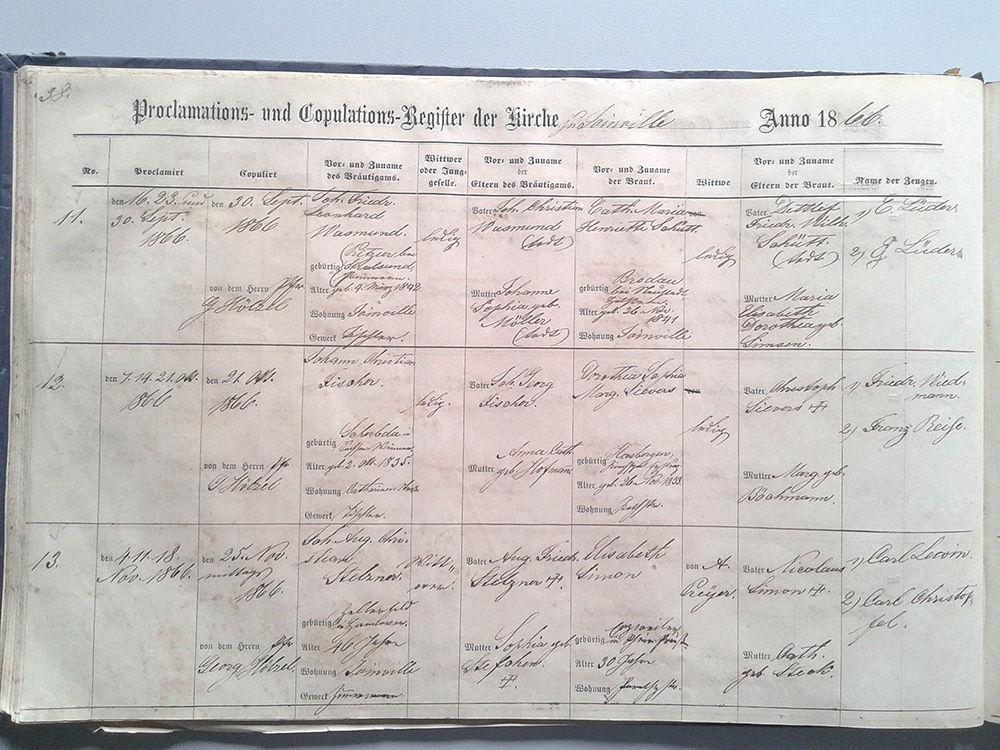 38.
Proclamations- und Copulations-Register der Kirche zu Joinville Anno 1866.
No.
Proclamirt
Copulirt
Vor- und Zuname
des Bräutigams.
Wittwer
oder Jung-
geselle.
Vor- und Zuname
der
Eltern des Bräutigams.
Vor- und Zuname
der Braut.
Wittwe
Vor- und Zuname
der
Eltern der Braut.
Name der Zeugen.
11.
den 16. 23. und
30. Sept.
1866
den 30. Sept.
1866
von dem Herrn Pfr
G Hölzel
Joh. Friedr.
Leonhard
Wasmund.
gebürtig Stralsund
Alter geb. 4. März 1842
Wohnung Joinville
Gewerk Tischler.
ledig
Vater Joh. Christian
Wasmund
(todt)
Mutter Johanne
Sophia geb.
Möller
(todt)
Cath. Maria
Henriette Schütt
gebürtig Brodau
bei Neustadt
Alter geb. 26. Nov.
1841
Wohnung Joinville
von
ledig
Vater Detlef
Friedr. Wilh.
Schütt
(todt)
Mutter Maria
Elisabeth
Dorothea geb.
Simsen.
1) E. Lüder
2) Lüder
12.
den 7. 14. 21. Okt.
1866
den 21 Okt.
1866.
von dem Herrn Pfr
G Hölzel
Johann Christian
Fischer.
gebürtig
Alter geb. 2. Okt. 1835.
Wohnung
Gewerk
ledig.
Vater Joh. Georg
Fischer.
Anna Cath.
Mutter geb. Hofmann
Dorothea Sophia
Marg. Sievers
gebürtig Hasbergen,
Alter geb. 26. Nov. 1833
Wohnung
von
ledig
Vater Christoph
Sievers ‡
Mutter Marg. geb.
Böschmann.
1) Friedr. Wied-
mann.
2) Franz Reiße.
13.
den 4. 11. 18.
Nov. 1866.
den 25. Nov.
mittags
1866.
von dem Herrn Pfr
Georg Hölzel.
Joh. Aug. Chri-
stian
Stelzner.
gebürtig Zellerfeld
in Hannover.
Alter 46 Jahre
Wohnung Joinville
Gewerk Zimmermann.
Witt-
wer.
Vater Aug. Friedr.
Stelzner ‡
Mutter Sophia geb.
‡.
Elisabeth
Simon
gebürtig
Alter 30 Jahre
Wohnung
von A.
Vater Nicolaus
Simon ‡
Mutter Cath.
geb. Steck.
1) Carl Lewin
2) Carl Christof-
fel.